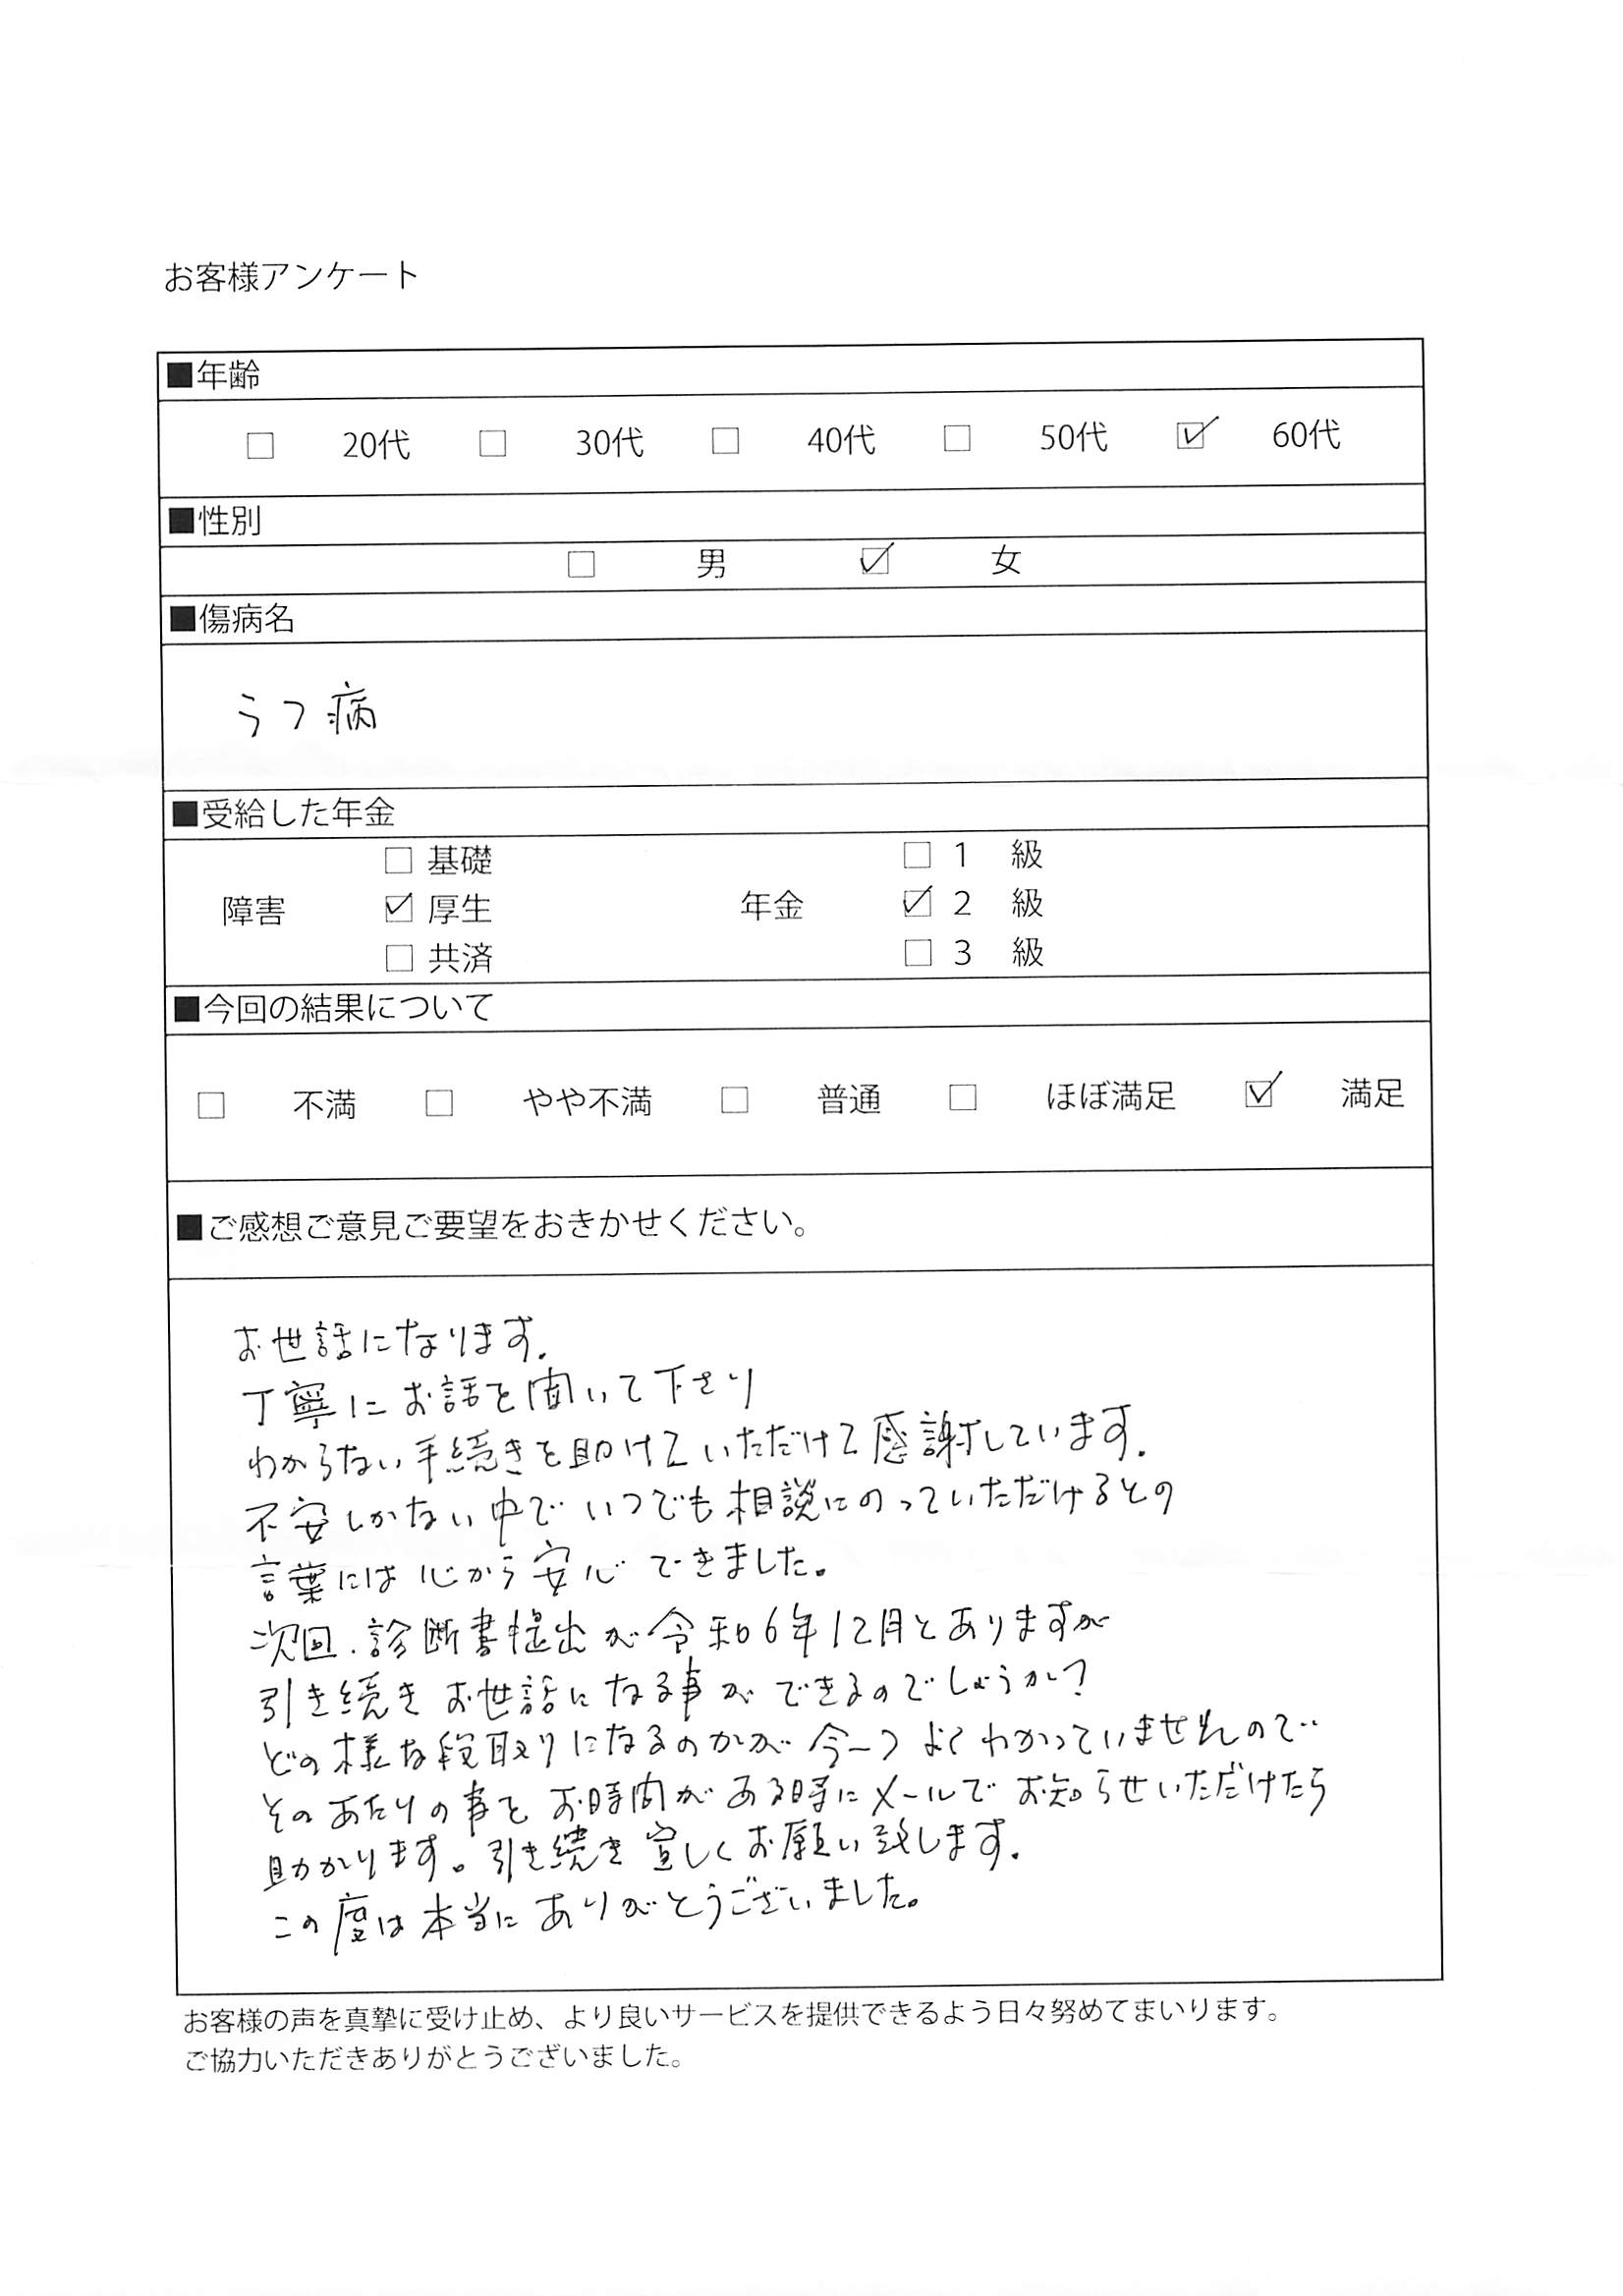 お客様アンケート
■年齢
□ 20代 □ 30代 □ 40代 □ 50代 ☑ 60代
■性別
□ 男 ☑ 女
■傷病名
うつ病
■受給した年金
□ 基礎 □ 1 級
障害 ☑ 厚生 年金 ☑ 2 級
□ 共済 □ 3 級
■今回の結果について
□ 不満 □ やや不満 □ 普通 □ ほぼ満足 ☑ 満足
■ご感想ご意見ご要望をおきかせください。
お世話になります.
丁寧にお話を聞いて下さり
わからない手続きを助けていただけて感謝しています.
不安しかない中でいつでも相談にのっていただけるとの
言葉には心から安心できました。
次回.診断書提出が令和6年12月とありますが
引き続きお世話になる事ができるのでしょうか?
どの様な段取りになるのかが今一つよくわかっていませんので
そのあたりの事をお時間がある時にメールでお知らせいただけたら
助かります。引き続き宜しくお願い致します.
この度は本当にありがとうございました。
お客様の声を真摯に受け止め、より良いサービスを提供できるよう日々努めてまいります。
ご協力いただきありがとうございました。